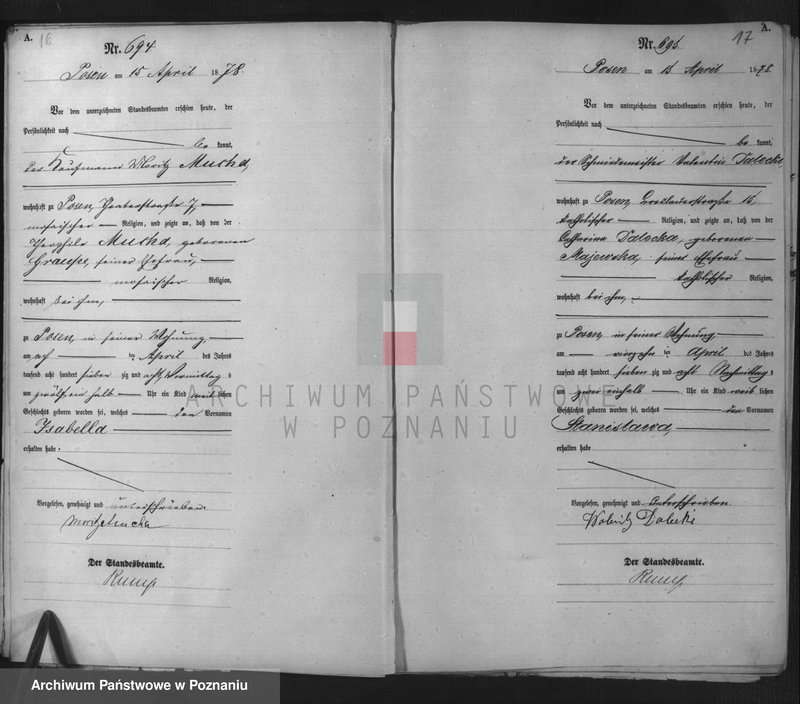 A. 16
Nr. 694
Posen am 15 April 1878.
Vor dem unterzeichneten Standesbeamten erschien heute, der
Persönlichkeit nach
be kannt,
der Kaufmann Moritz Mucha,
wohnhaft zu Posen,
mosaischer Religion, und zeigte an, daß von der
Mucha, geborenen
Graupe, seiner Ehefrau,
mosaischer Religion,
wohnhaft bei ihm,
zu Posen, in seiner Wohnung,
am ten April des Jahres
tausend acht hundert sieben zig und acht, Vormittag s
um zwölf ein halb Uhr ein Kind weib lichen
Geschlechts geboren worden sei, welches den Vornamen
Isabella
erhalten habe.
Vorgelesen, genehmigt und unterschrieben
Moritz Mucha
Der Standesbeamte.
17 A.
Nr. 695
Posen am 15 April 1878.
Vor dem unterzeichneten Standesbeamten erschien heute, der
Persönlichkeit nach
be kannt,
der Schmiedemeister Valentin
wohnhaft zu Posen, Breslauerstraße 15,
katholischer Religion, und zeigte an, daß von der
Catharina geborenen
Majewska, seiner Ehefrau
katholischer Religion,
wohnhaft bei ihm,
zu Posen, in seiner Wohnung,
am vierzehn ten April des Jahres
tausend acht hundert sieben zig und acht Nachmittag s
um zwei einhalb Uhr ein Kind weib lichen
Geschlechts geboren worden sei, welches den Vornamen
Stanislawa,
erhalten habe
Vorgelesen, genehmigt und unterschrieben
Der Standesbeamte.
ARCHIWUM PAŃSTWOWE
W POZNANIU
Archiwum Państwowe w Poznaniu